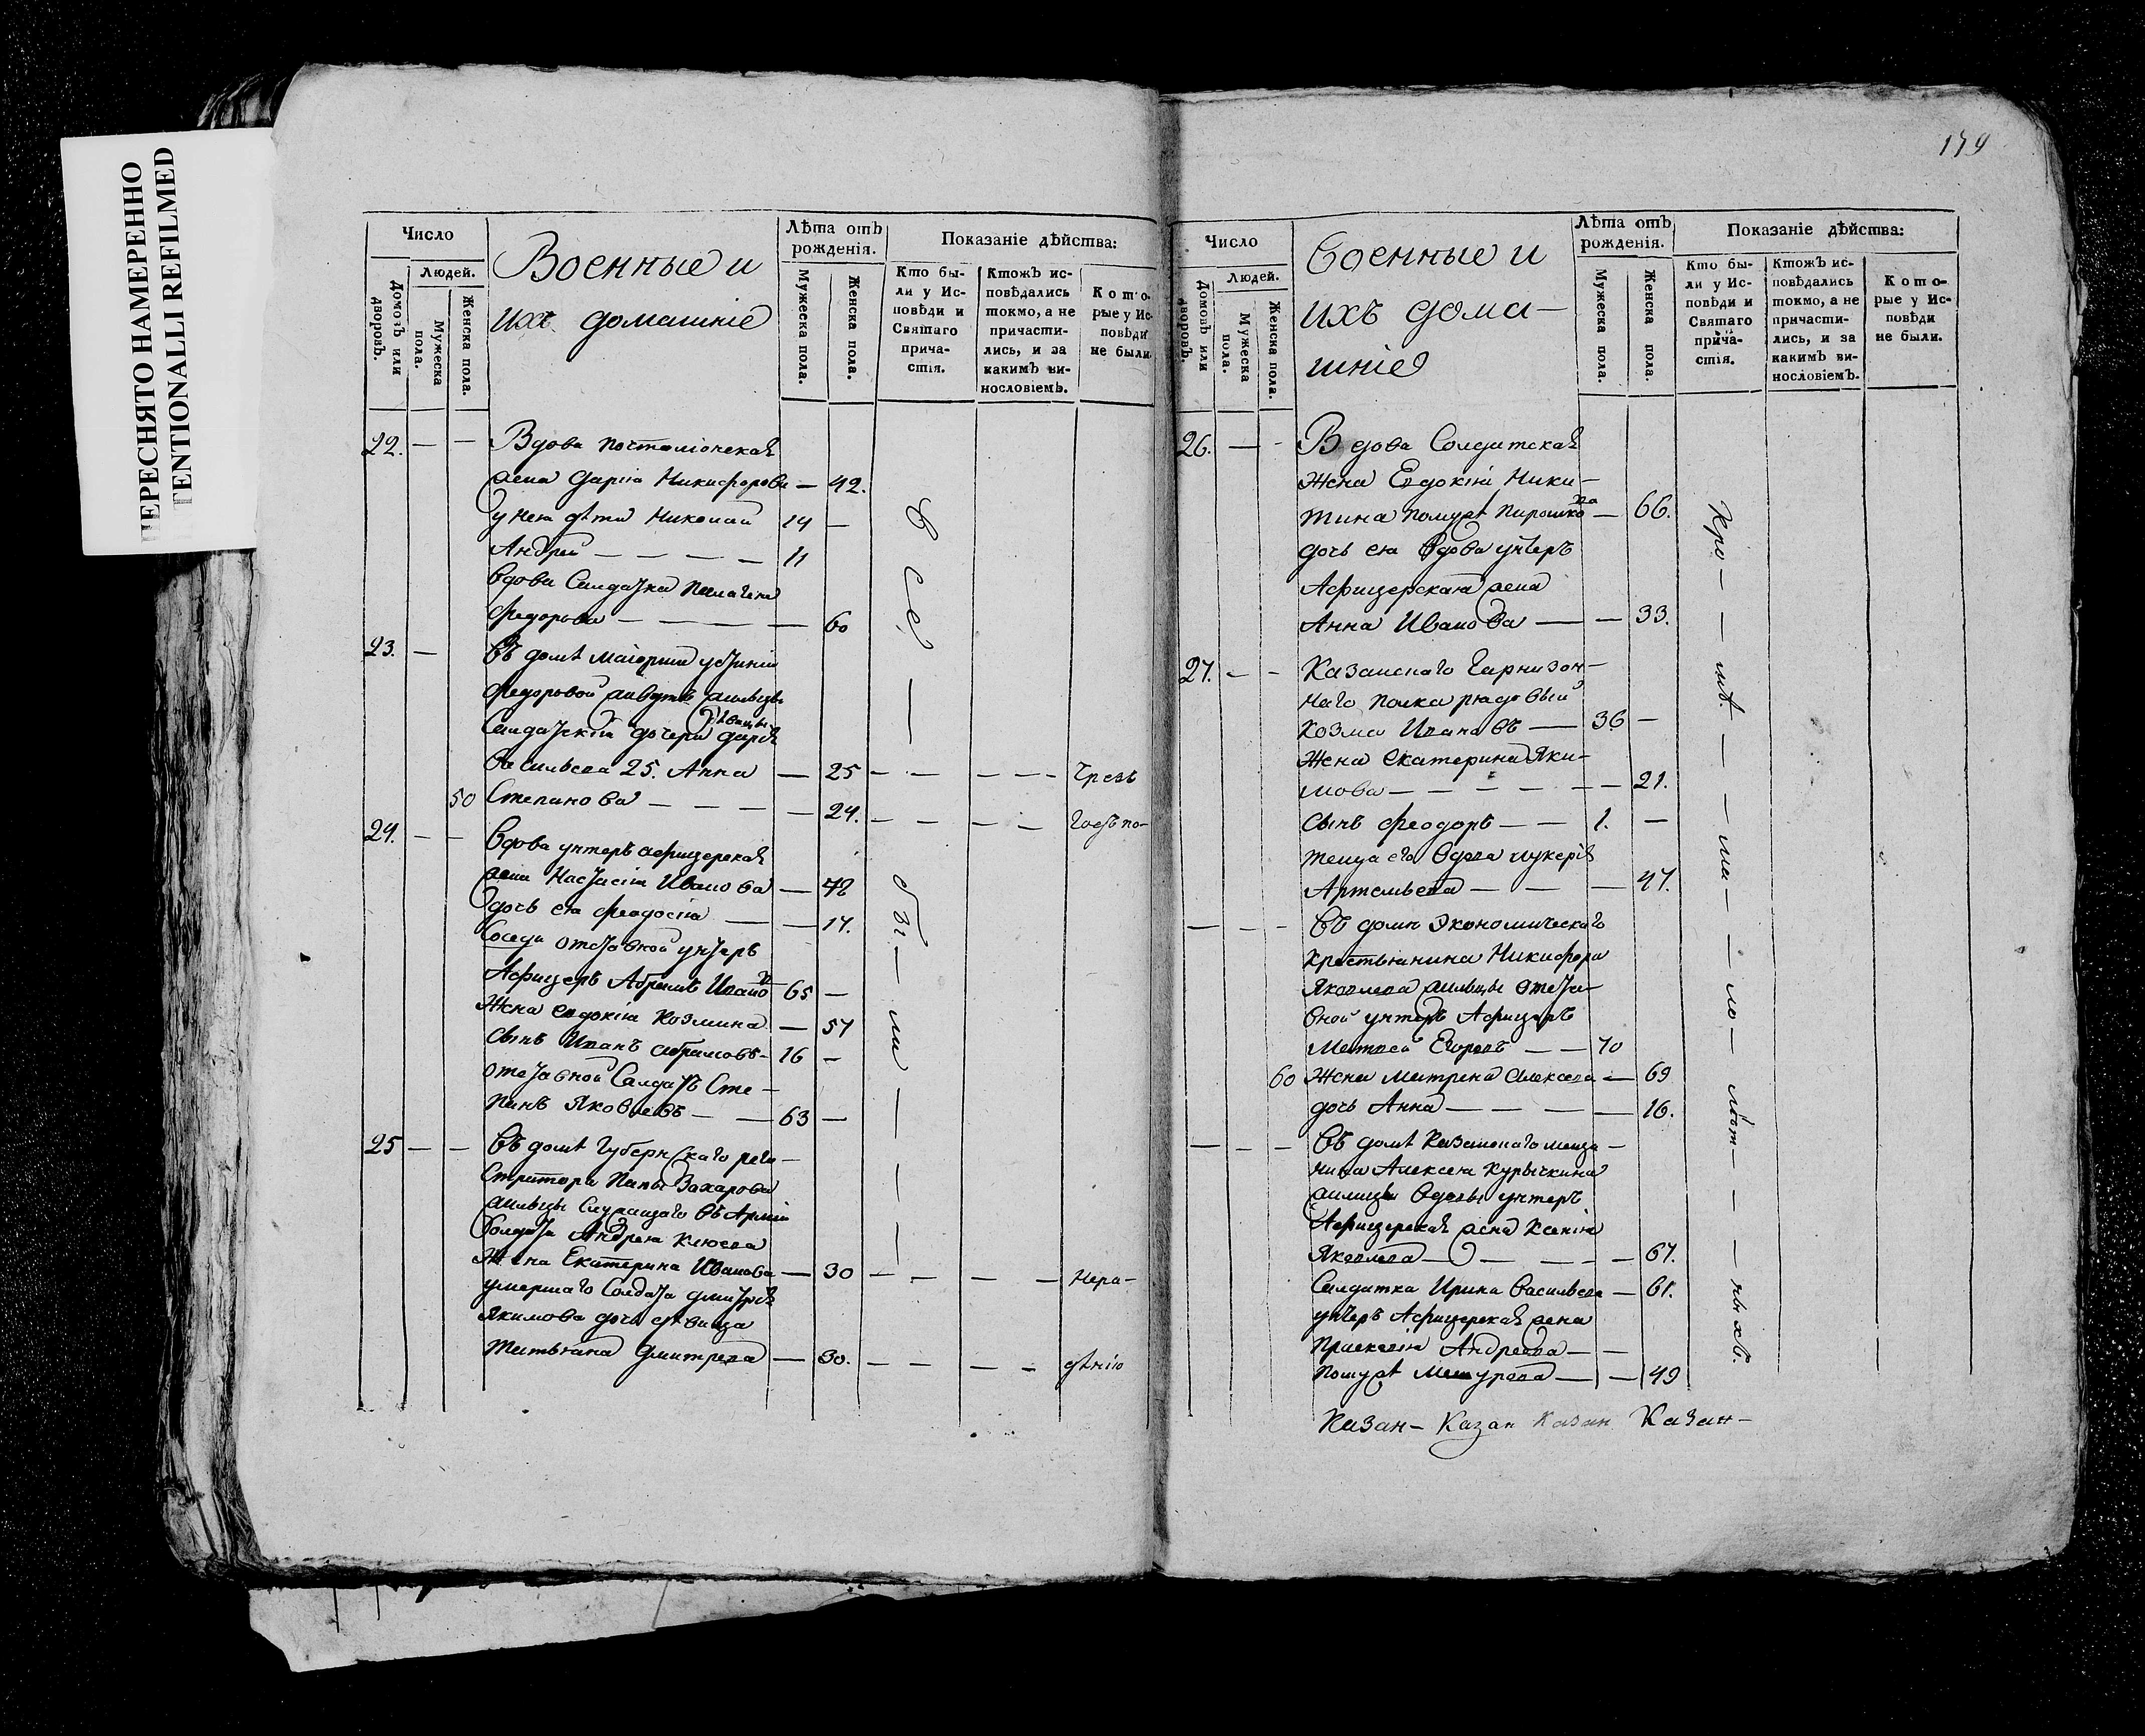 ПЕРЕСНЯТО НАМЕРЕННО
TENTIONALLI REFILMED
179
Число
Людей.
Домовъ или дворовъ.
Мужеска пола.
Женска пола.
Военные и
ихъ домашніе
Лѣта отъ
рожденія.
Мужеска пола.
Женска пола.
Показаніе дѣйства:
Кто бы-
ли у Ис-
повѣди и
Святаго
прича-
стія.
Ктожъ ис-
повѣдались
токмо, а не
причасти-
лись, и за
какимъ ви-
нословіемъ.
Кото-
рые у Ис-
повѣди
не были.
22. — — Вдова почталіонская
жена Дарія Никифорова — 42.
у нея дѣти Николай 14 —
Андрей — — — — 11
Вдова Салдатка Пелагея
Федорова — — — — 60
23. — Въ домѣ маіорши Устиніи
Федоровой живутъ жильцы
Салдатскія дочери дѣвицы Дарія
Васильева 25. Анна — 25 — — — — Чрезъ
50 Степанова — — — — 24. — — — —
24. — — Вдова унтеръ афицерская
жена Настасія Иванова — 42
дочь ея Феодосія — — 17.
Соседи отставной унтеръ
Афицеръ Абрамъ Ивановъ 65 —
Жена Евдокія Козмина — 57
сынъ Иванъ Абрамовъ — 16 —
отставной Салдатъ Сте-
панъ Яковлевъ — — 63 —
25 — — Въ домѣ Губернскаго реги-
стратора Захарова
жильцы Служащаго въ Арміи
Солдата Андрея Клюева
Жена Екатерина Иванова — 30 — — — — Нера-
умершаго Солдата Дмитрія
Якимова дочь дѣвица
Татьяна Дмитрева — 30. — — — — дѣнію
всѣ — бы — ли — — —
Число
Людей.
Домовъ или дворовъ.
Мужеска пола.
Женска пола.
Военные и
ихъ дома-
шніе
Лѣта отъ
рожденія.
Мужеска пола.
Женска пола.
Показаніе дѣйства:
Кто бы-
ли у Ис-
повѣди и
Святаго
прича-
стія.
Ктожъ ис-
повѣдались
токмо, а не
причасти-
лись, и за
какимъ ви-
нословіемъ.
Кото-
рые у Ис-
повѣди
не были.
26. — — Вдова Солдатская
Жена Евдокія Ники-
тина — 66.
дочь ея Вдова унтеръ
Афицерская жена
Анна Иванова — — 33.
27. — — Казанскаго Гарнизон-
наго полка рядовый
Козма Ивановъ — 36 —
Жена Екатерина Яки-
мова — — — — — 21.
сынъ Феодоръ — — 1. —
теща его Вдова Лукерія
Артемьева — — — 47.
— — — Въ доме Экономическаго
Крестьянина Никифора
Яковлева жильцы отста-
вной унтеръ Афицеръ
Матвей Егоровъ — — 70
60 Жена Матрена Алексева — 69
дочь Анна — — — — 16.
— — — Въ домѣ Казанскаго меща-
нина Алексея Курычкина
жильцы Вдовы унтеръ
Афицерская жена Ксенія
Яковлева — — — — 67.
Салдатка Ирина Васильева — 61.
унтеръ Афицерская жена
Андреева — —
— — 49
Кро — — мѣ — — ма — — ло — лѣт — — ныхъ.
Казан — Казан Казан Казан —